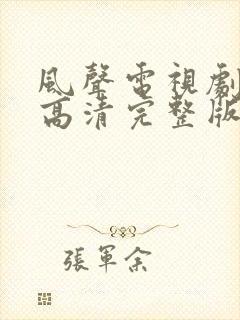 風聲電視劇
高清完整版
張軍余